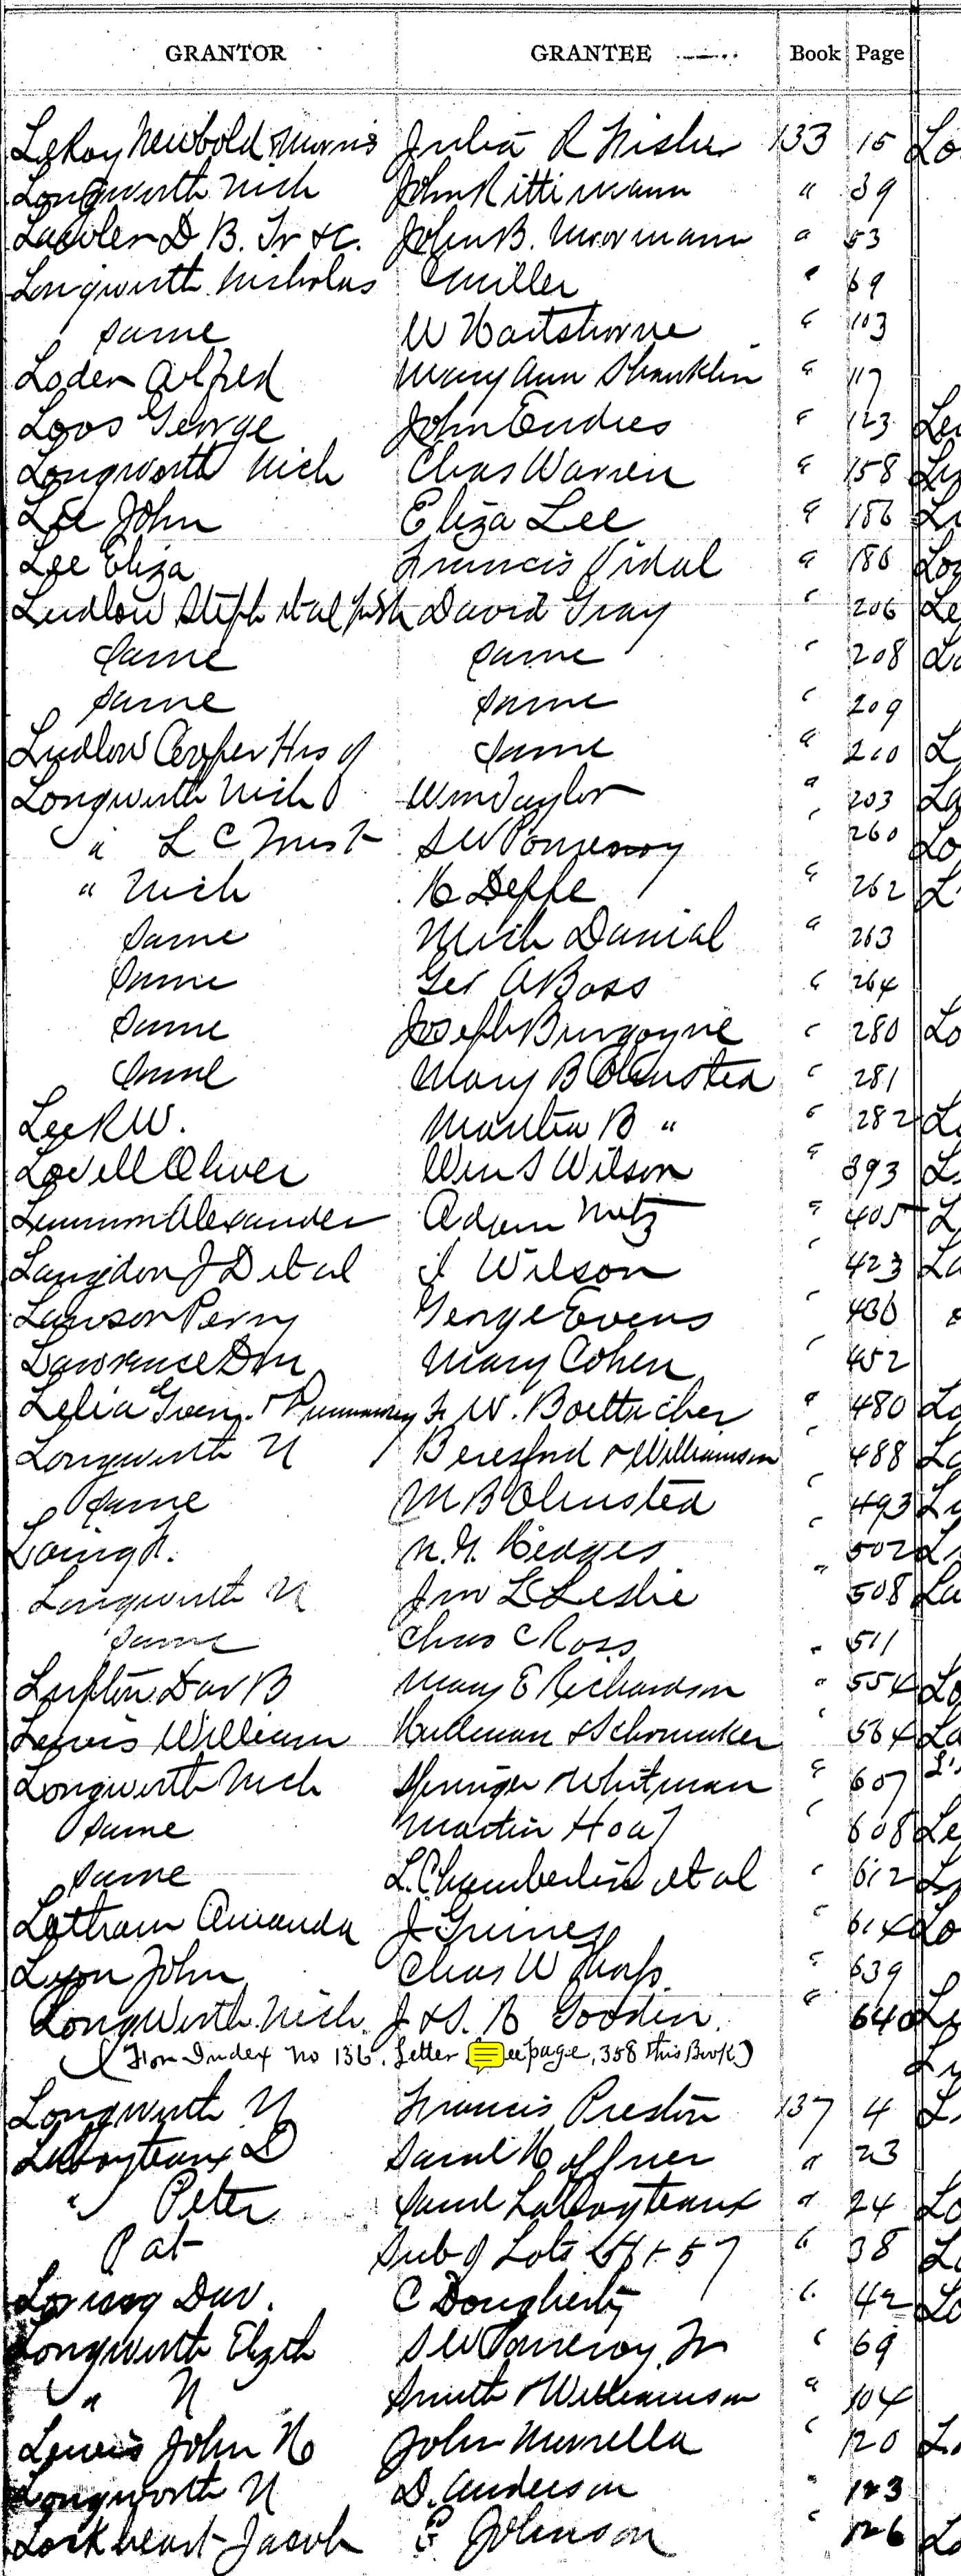 GRANTOR GRANTEE Book Page
LeRoy Newbold Morris Julia R Fisher 133 15
Longworth Nich John Rittimann " 39
Lawler D B. Tr &c. John B. Moormann " 53
Longworth Nicholas Miller " 69
Same W Hartshorne " 103
Loder Alfred Mary Ann Shanklin " 117
Loos George John Endres " 123
Longworth Nich Chas Warren " 158
Lee John Eliza Lee " 186
Lee Eliza Francis Vidal " 186
Ludlow Steph et al David Gray " 206
Same Same " 208
Same Same " 209
Ludlow Cooper Hrs of Same " 210
Longworth Nich Wm Taylor " 203
" L C Trust S W Pomeroy " 260
" Nich H Deppe " 262
Same Mich Danial " 263
Same Geo A Boss " 264
Same Joseph Burgoyne " 280
Same Mary B Olmsted " 281
Lee R W. Martha B " " 282
Lovell Oliver Wm S Wilson " 393
Lemmon Alexander Adam Metz " 405
Langdon J D et al J Wilson " 423
Lawson Perry George Evens " 436
Lawrence Mary Cohen " 452
Lelia W. Boettcher " 480
Longworth N Beresford & Williamson " 488
Same M B Olmsted " 493
Laing N. N. Hedges " 502
Longworth N Jno L Leslie " 508
Same Chas C Ross " 511
Lupton Dav B Mary E Richardson " 554
Lewis William Kullman & Schomaker " 564
Longworth Nich Springer & Whitman " 607
Same Martin Hoaf " 608
Same L. Chamberlin et al " 612
Latham Amanda J Grimes " 614
Lyon John Chas W Thorp " 639
Longworth Nich. J & S. B Goodin. " 640
(For Index No 136. Letter see page, 358 this Book.)
Longworth N Francis Preston 137 4
LaBoyteaux D Saml Hoffner " 23
" Peter Saml LaBoyteaux " 24
Plat Sub of Lots 58 & 57 " 38
Loring Dav. C Dougherty " 42
Longworth Elizth S W Pomeroy Jr " 69
" N Smith & Williamson " 104
Lewis John H John Murrella " 120
Longworth N D. Anderson " 123
Lockheart Jacob E Johnson " 126